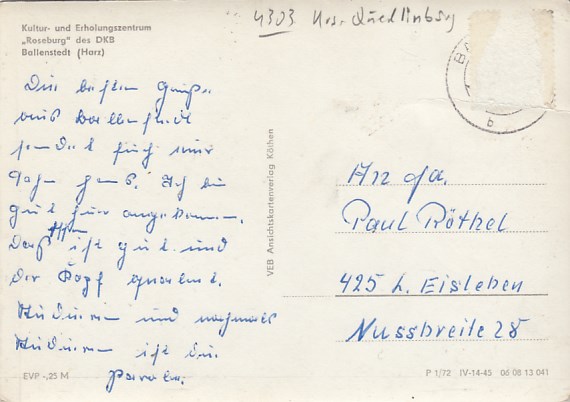 4303 Krs. Quedlinburg
Kultur- und Erholungszentrum
„Roseburg" des DKB
Ballenstedt (Harz)
Die besten Grüße
aus Ballenstedt
sendet euch euer
Ich bin
gut hier angekommen.
Das Essen ist gut und
der Kopf qualmt.
Studieren und nochmals
Studieren ist die
Parole.
EVP -,25 M
VEB Ansichtskartenverlag Köthen
An Fa.
Paul Röthel
425 L. Eisleben
Nussbreite 28
P 1/72 IV-14-45 06 08 13 041
b